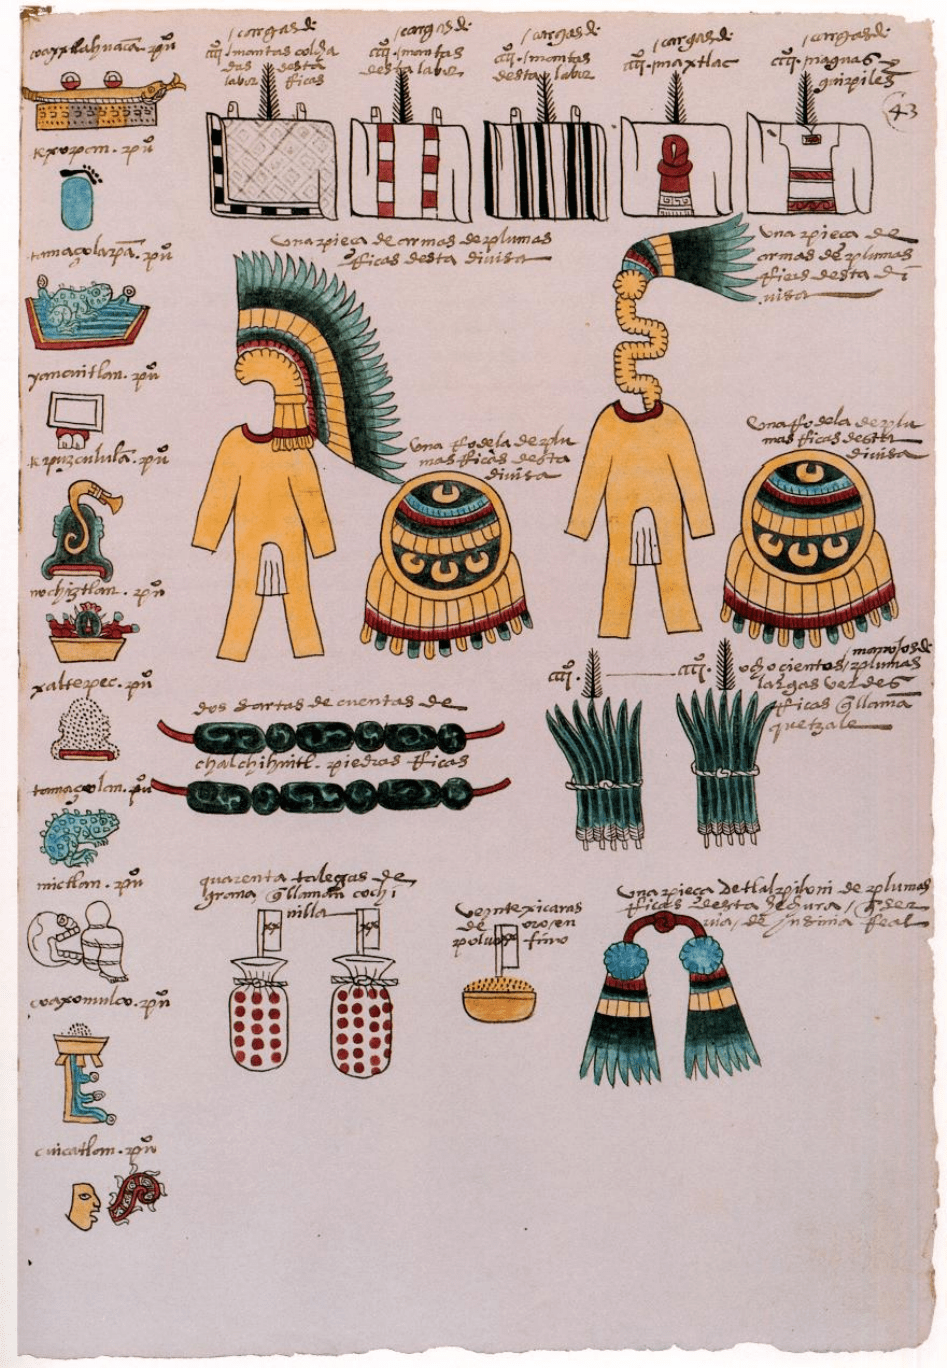 coayxtlahuacā. puº
texopan. puº
tamaçolapā. puº
yancuitlan. puº
tepuzcululā. puº
nochiztlan. puº
xaltepec. puº
tamaçolan. puº
mictlan. puº
coaxomulco. puº
cuicatlan. puº
cargas de
cccc. mantas colcha
das desta
labor ricas
cargas de
cccc. mantas
desta labor
cargas de
cccc. mantas
desta labor
cargas de
cccc. maxtlac
cargas de
cccc. naguas y
guipiles
43
Una pieça de armas de plumas
ricas desta divisa
Una pieça de
armas de plumas
ricas desta di
visa
Una rodela de plu
mas ricas desta
divisa
Una rodela de plu
mas ricas desta
divisa
dos sartas de cuentas de
chalchihuitl. piedras ricas
cccc.
cccc.
ochocientos manojos de
plumas
largas verdes
ricas q̄ llamā
quetzale
quarenta talegas de
grana q̄ llaman cochi
nilla
Veynte xicaras
de oro en
polvo fino
Una pieça de tlalpiloni de plumas
ricas desta hechura, q̄ ser
via, de insinia real